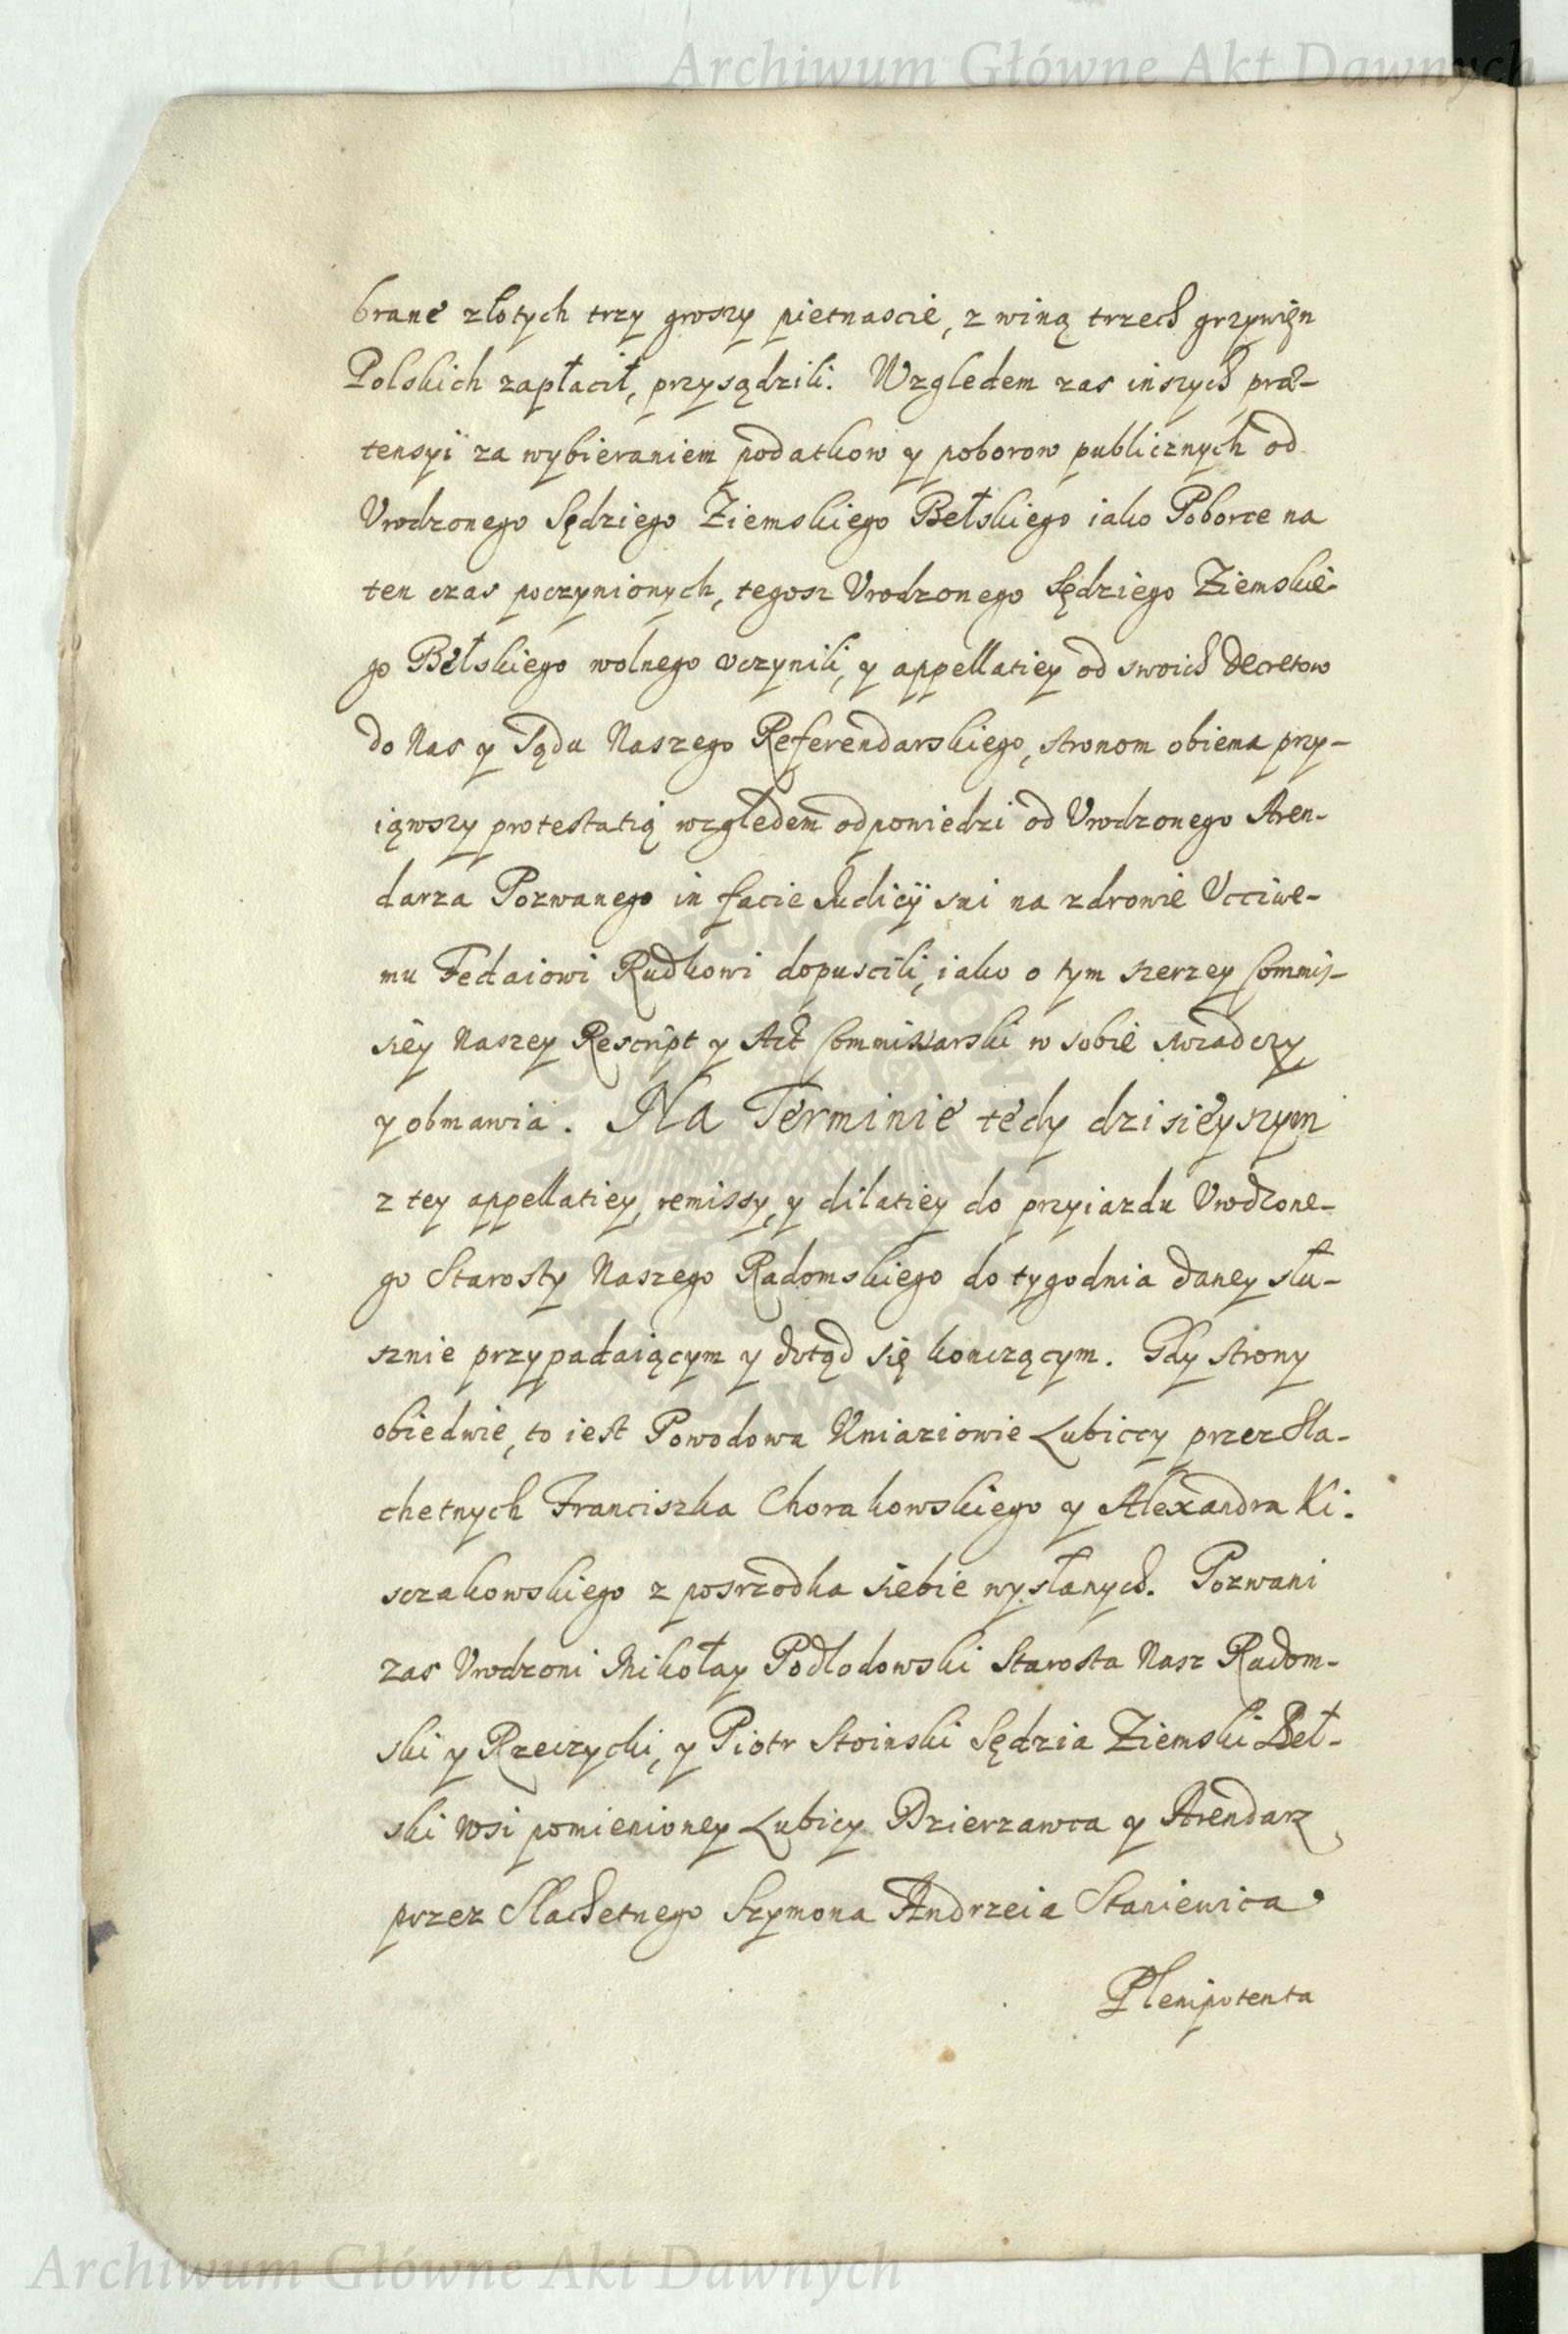 Archiwum Główne Akt Dawnych
brane złotych trzy groszy pietnascie, z winą trzech grzywięn
Polskich zapłacił, przysądzili. Względem zas inszych præ-
tensyi za wybieraniem podatkow y poborow publicznych od
Vrodzonego Sędziego Ziemskiego Bełskiego iako Poborce na
ten czas poczynionych, tegosz Vrodzonego Sędziego Ziemskie-
go Bełskiego wolnego vczynili, y appellatiey od swoich decretow
do Nas y Sądu Naszego Referendarskiego, stronom obiema przy-
iąwszy protestatią względem odpowiedzi od Vrodzonego Aren-
darza Pozwanego in facie Judicÿ sui na zdrowie Vcciwe-
mu Fedaiowi Rudkowi dopuscili, iako o tym szerzey Commis-
siey Naszey Rescript y Act Commissarski w sobie swiadczy
y obmawia. Na Terminie tedy dzisieyszym
z tey appellatiey, remissy, y dilatiey do przyiazdu Vrodzone-
go Starosty Naszego Radomskiego do tygodnia daney słu-
sznie przypadaiącym y dotąd się konczącym. Gdy strony
obiedwie, to iest Powodowa Kniaziowie Lubiccy przez Sla-
chetnych Franciszka Chorakowskiego y Alexandra Ki-
sczakowskiego z posrzodka siebie wysłanych. Pozwani
zas Vrodzoni Mikołay Podlodowski Starosta Nasz Radom-
ski y Rzeczycki, y Piotr Stoinski Sędzia Ziemski Beł-
ski wsi pomienioney Lubicy Dzierzawca y Arendarz
przez Slachetnego Szymona Andrzeia Staniewica
Plenipotenta
Archiwum Główne Akt Dawnych